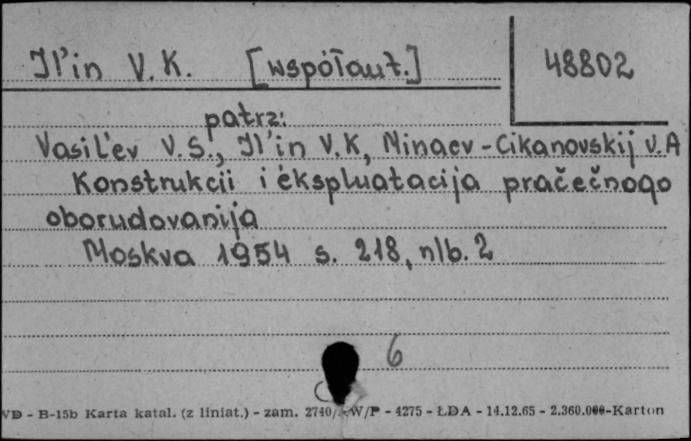 Il'in V.K. [współaut.] 48802
patrz:
Vasil'ev V.S., Il'in V.K, Minaev-Cikanovskij V.A
Konstrukcii i ėkspluatacija pračečnogo
oborudovanija
Moskva 1954 s. 218, nlb. 2
6
WD - B-15b Karta katal. (z liniat.) - zam. 2740/ W/P - 4275 - ŁDA - 14.12.65 - 2.360.000-Karton